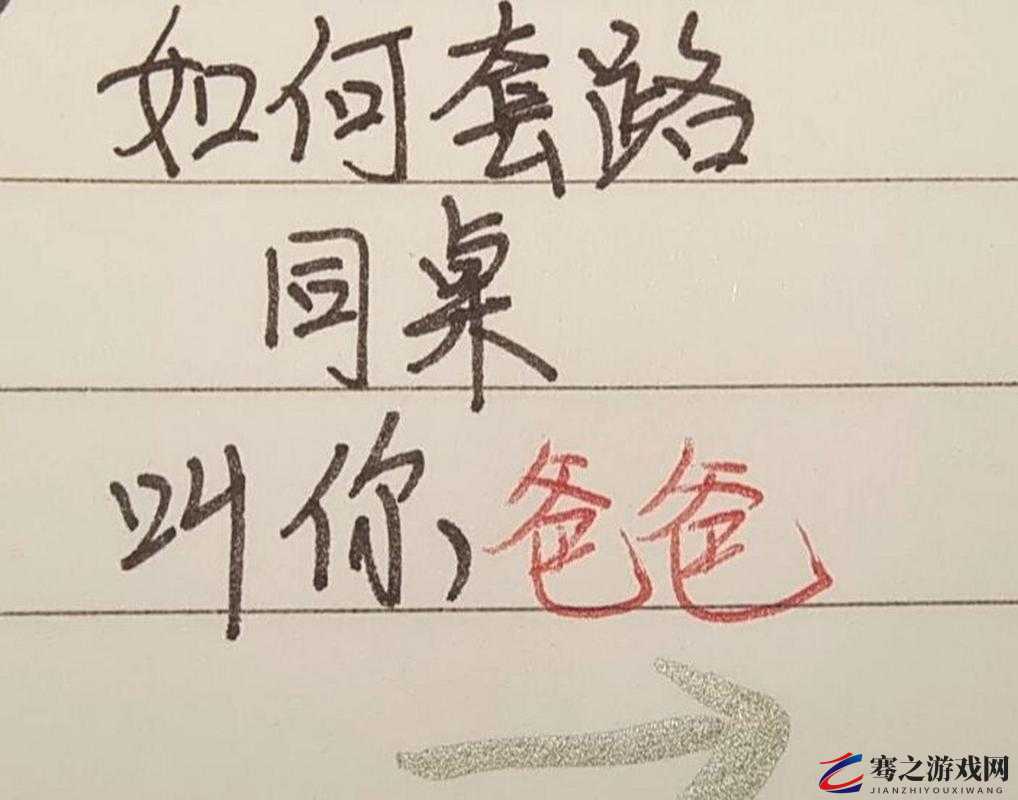 如何套路
同桌
叫你,爸爸
骞之游戏网
JIANZHIYOUXIWANG